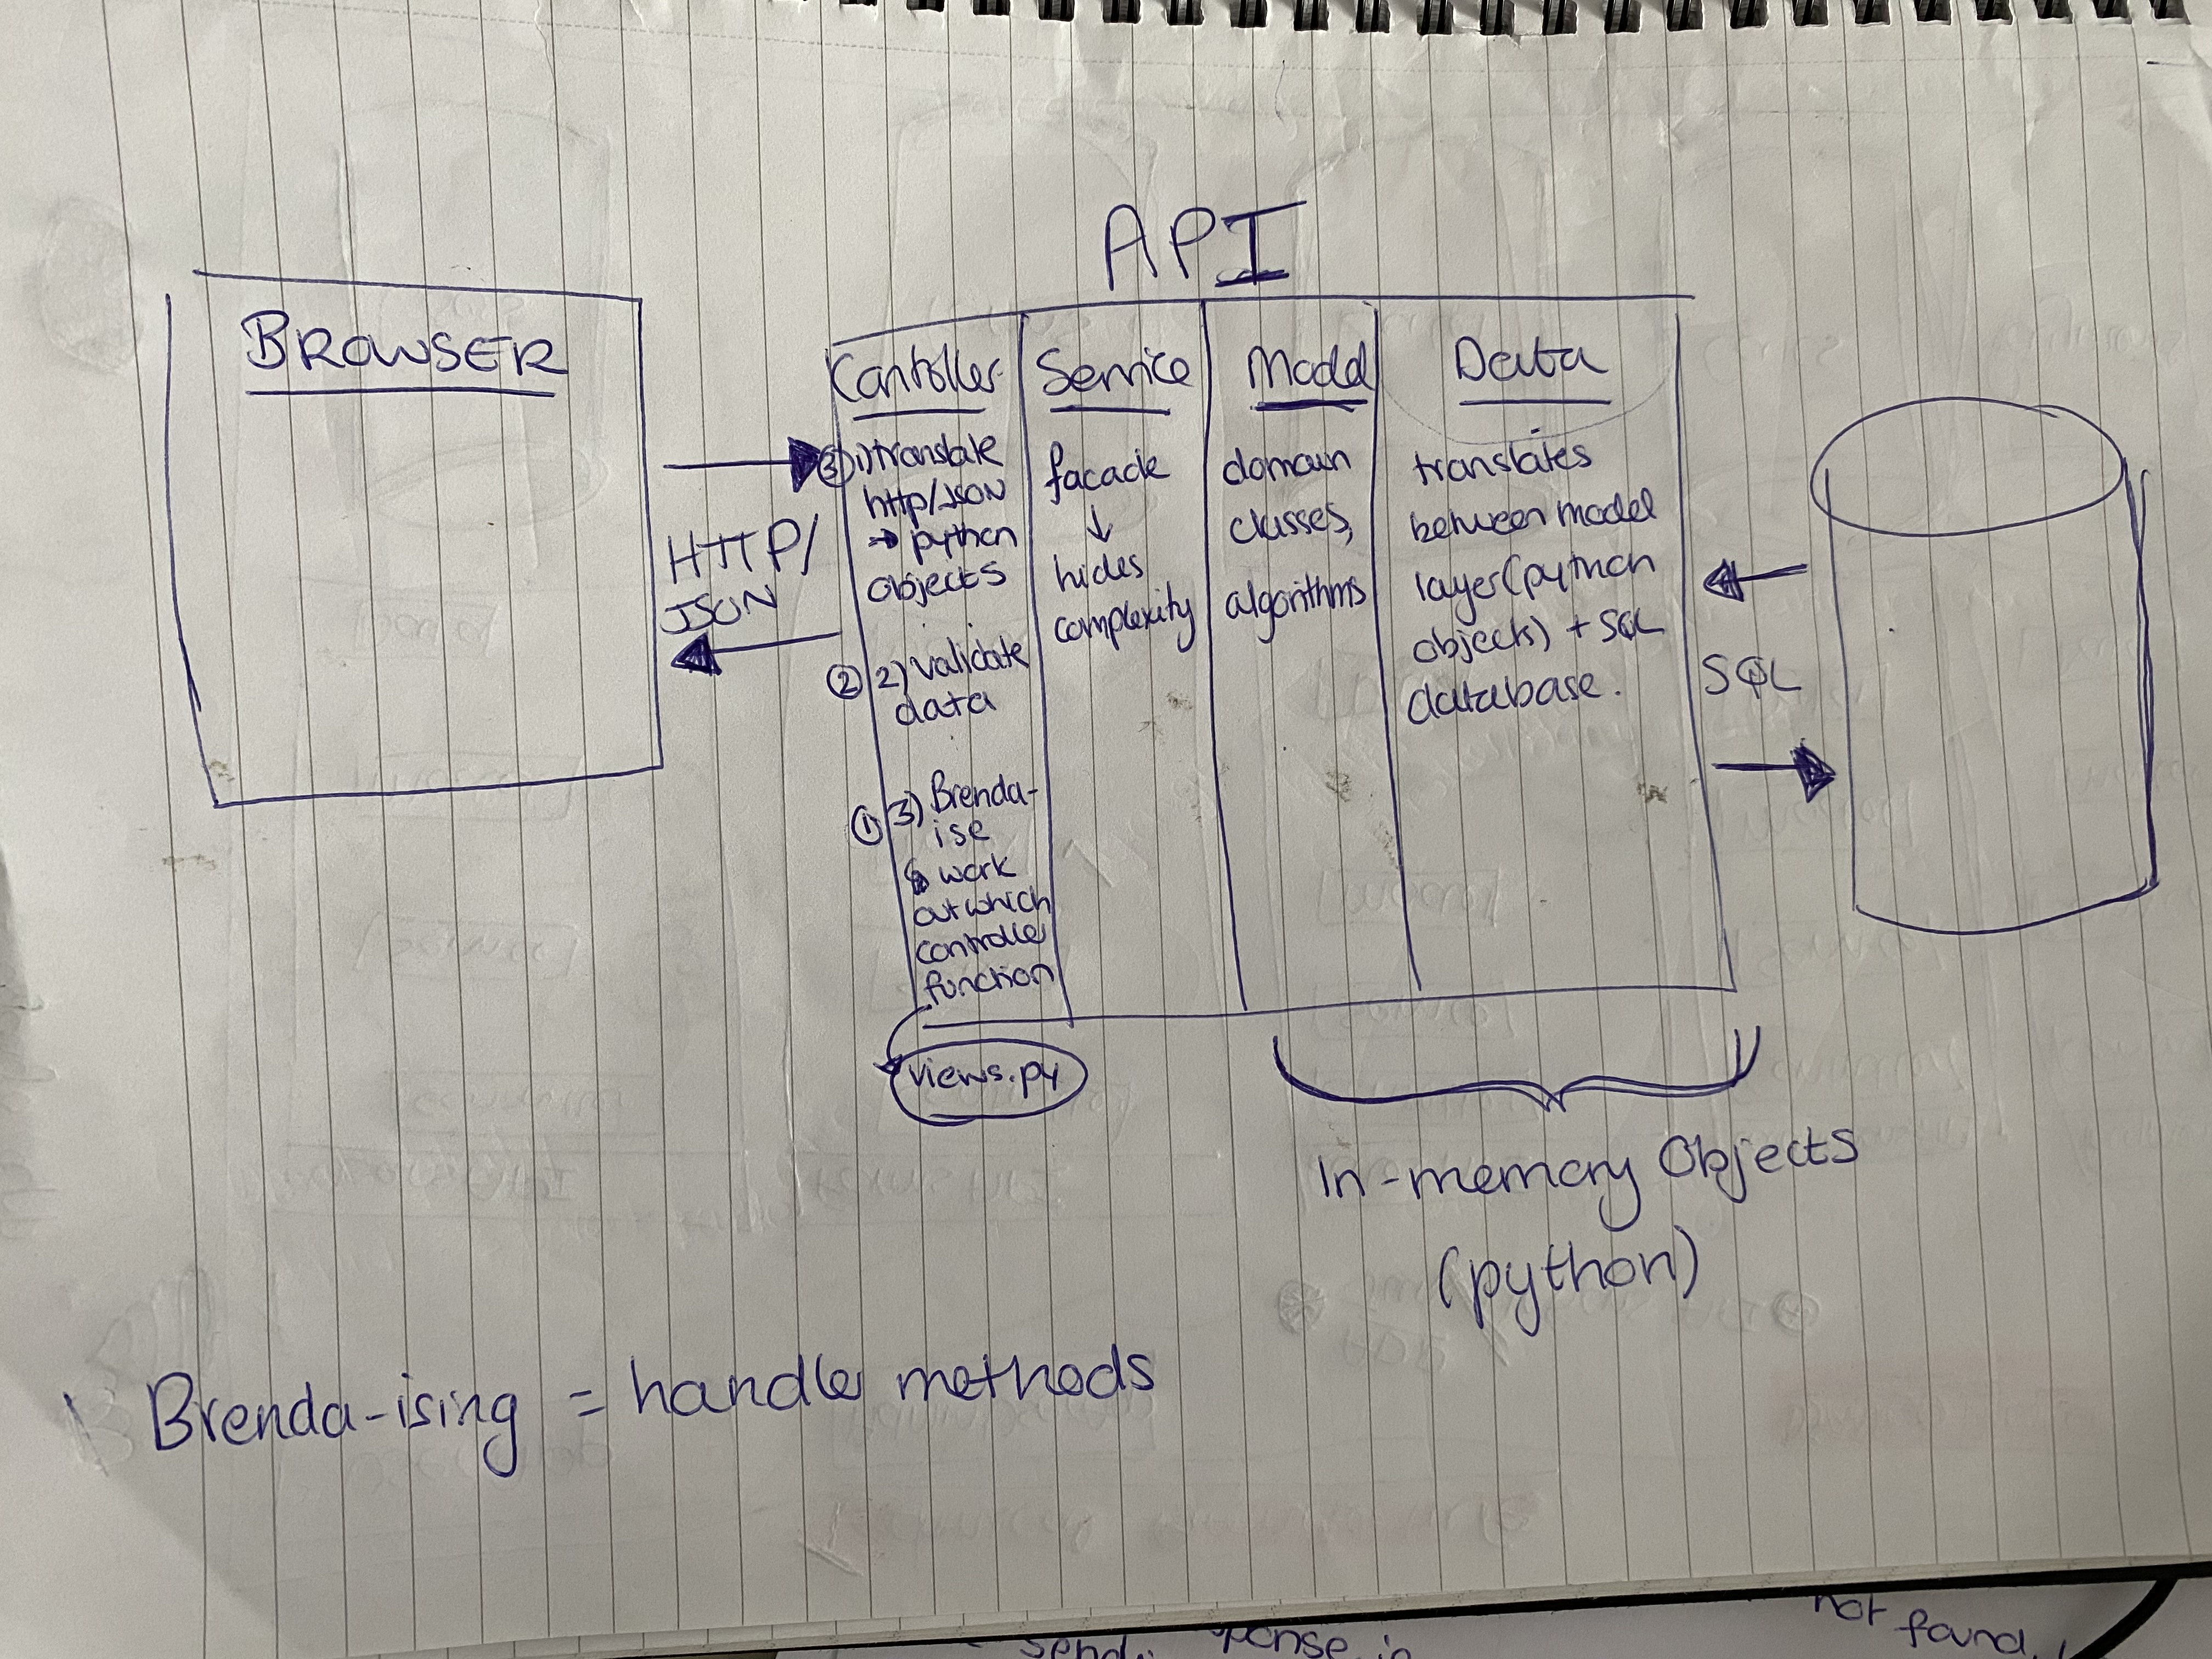 API
BROWSER
HTTP/
JSON
Controller
③ 1) translate
http/JSON
→ python
objects
② 2) validate
data
① 3) Brenda-
ise
↳ work
out which
controller
function
views.py
Service
facade
↓
hides
complexity
Model
domain
classes,
algorithms
Data
translates
between model
layer (python
objects) + SQL
database.
SQL
In-memory Objects
(python)
Brenda-ising = handler methods
not found.